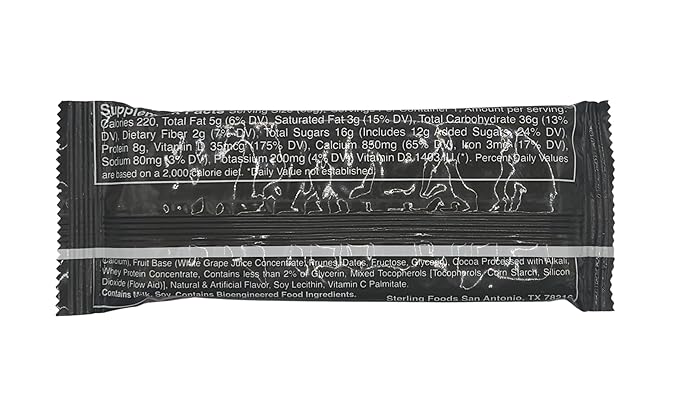 Supplement Facts Serving Size Servings Per Container 1, Amount per serving:
Calories 220, Total Fat 5g (6% DV), Saturated Fat 3g (15% DV), Total Carbohydrate 36g (13%
DV), Dietary Fiber 2g (7% DV), Total Sugars 16g (Includes 12g Added Sugars, 24% DV),
Protein 8g, Vitamin D 35mcg (175% DV), Calcium 850mg (65% DV), Iron 3mg (17% DV),
Sodium 80mg (3% DV), Potassium 200mg (4% DV) Vitamin D3 1403 IU (*). Percent Daily Values
are based on a 2,000 calorie diet. *Daily Value not established.
Calcium), Fruit Base (White Grape Juice Concentrate, Prunes, Dates, Fructose, Glycerin), Cocoa Processed with Alkali,
Whey Protein Concentrate, Contains less than 2% of Glycerin, Mixed Tocopherols [Tocopherols, Corn Starch, Silicon
Dioxide (Flow Aid)], Natural & Artificial Flavor, Soy Lecithin, Vitamin C Palmitate.
Contains Milk, Soy. Contains Bioengineered Food Ingredients.
Sterling Foods San Antonio, TX 78216